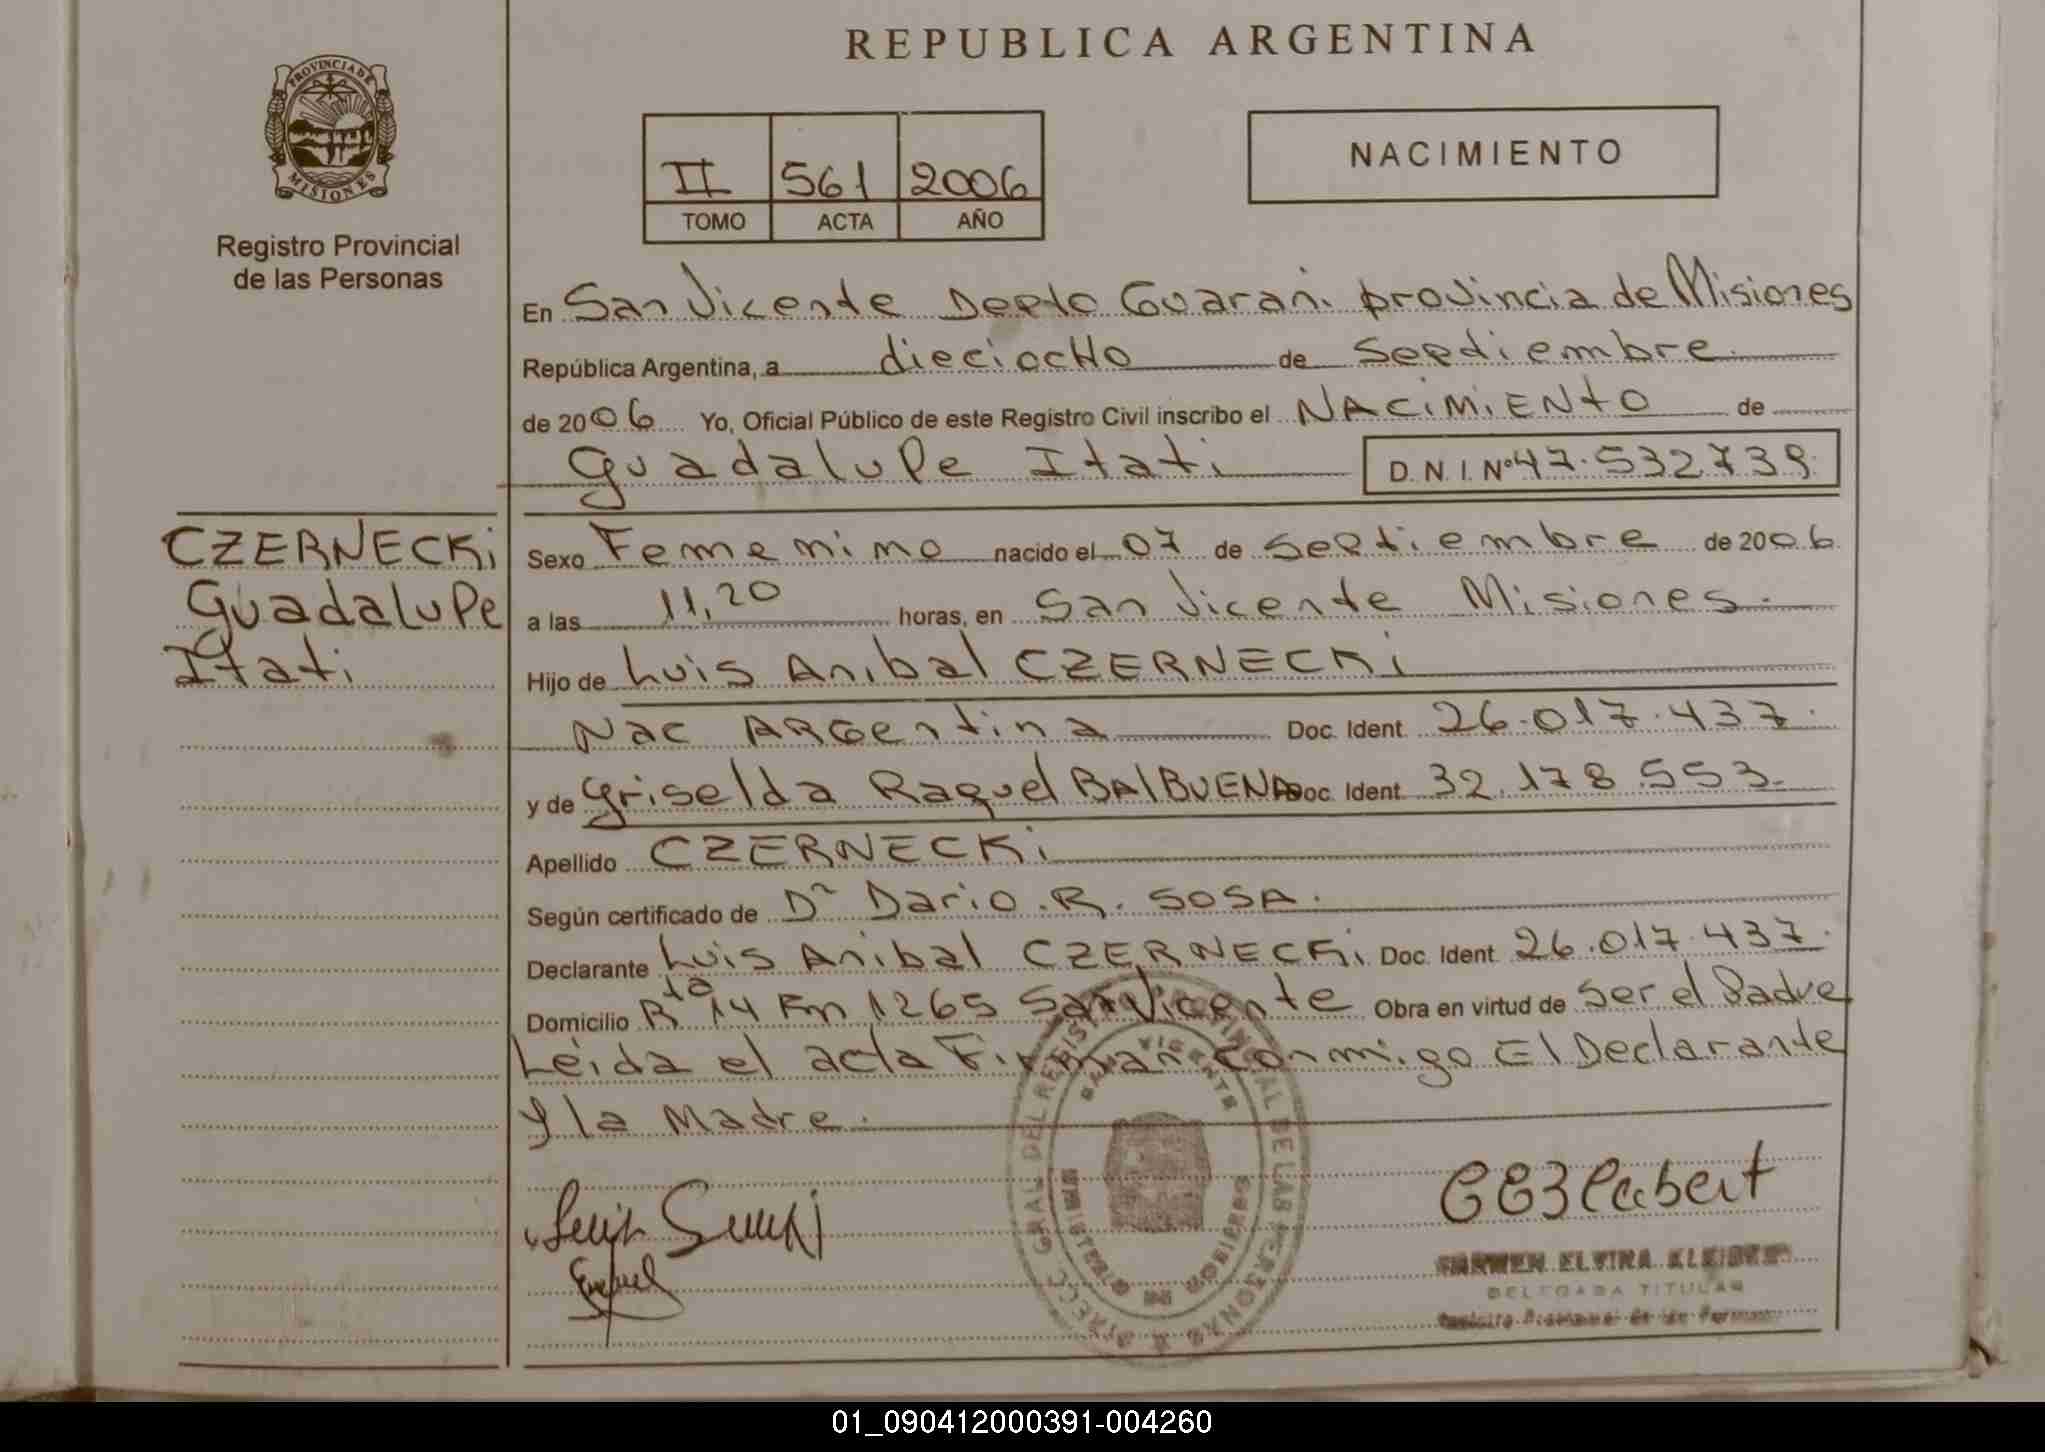 REPUBLICA ARGENTINA
PROVINCIA DE
MISIONES
Registro Provincial
de las Personas
II 561 2006
TOMO ACTA AÑO
NACIMIENTO
En San Vicente Depto Guarani provincia de Misiones
República Argentina, a dieciocHo de Septiembre
de 2006 Yo, Oficial Público de este Registro Civil inscribo el NACiMiENtO de
Guadalupe Itati D.N.I. Nº 47.532739.
CZERNECKi
Guadalupe
Itati
Sexo Femenino nacido el 07 de Septiembre de 2006
a las 11,20 horas, en San Vicente Misiones.
Hijo de Luis Anibal CZERNECKi
Nac ARGentina Doc. Ident. 26.017.437.
y de Griselda Raquel BAlBUENA Doc. Ident. 32.178.553.
Apellido CZERNECKi
Según certificado de Dr Dario.R. SOSA.
Declarante Luis Anibal CZERNECKi Doc. Ident. 26.017.437.
Domicilio Rta 14 Km 1265 San Vicente Obra en virtud de ser el Padre
Leida el acta Firman conmigo El Declarante
y la Madre.
DIRECC. GRAL. DEL REGISTRO PROVINCIAL DE LAS PERSONAS
SAN VICENTE
MINISTERIO DE GOBIERNO
CARMEN ELVIRA
DELEGADA TITULAR
Registro Provincial de las Personas
01_090412000391-004260